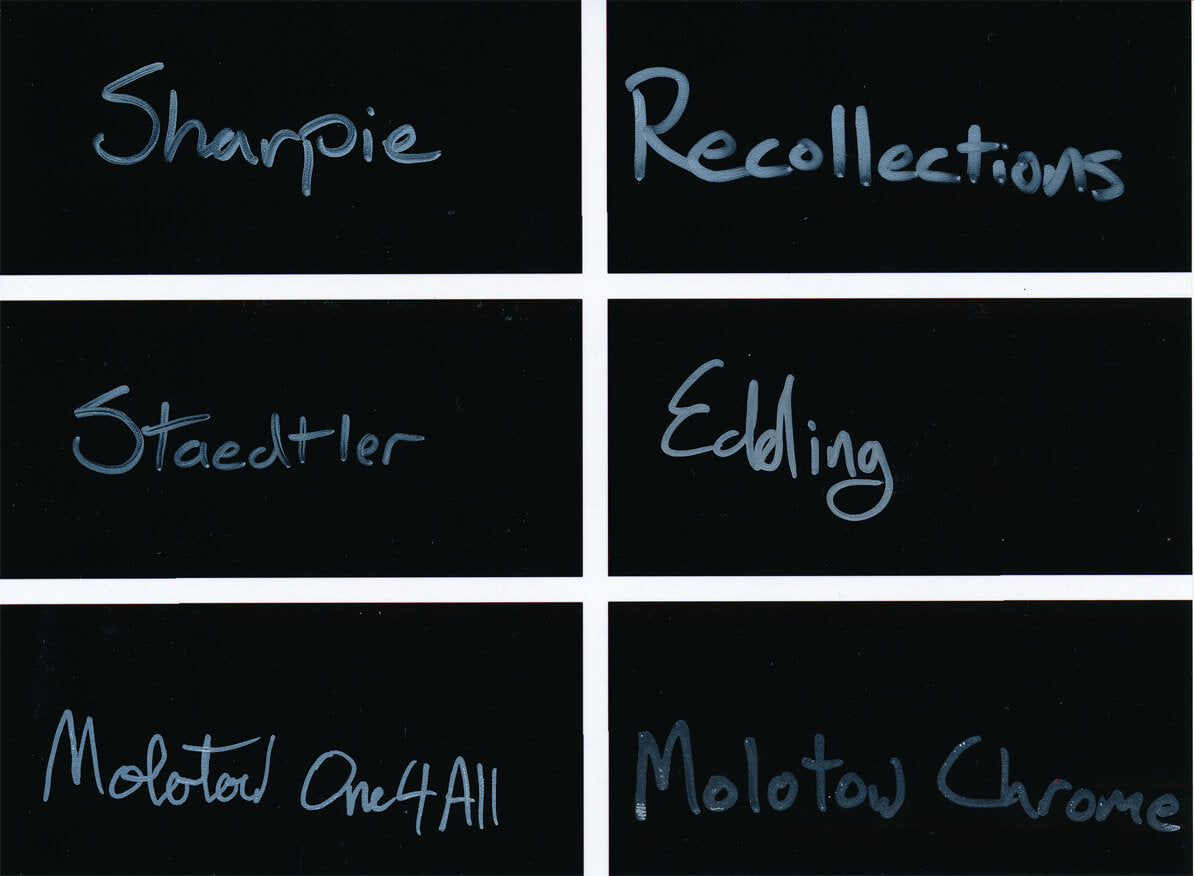 Sharpie
Recollections
Staedtler
Edding
Molotow One4All
Molotow Chrome